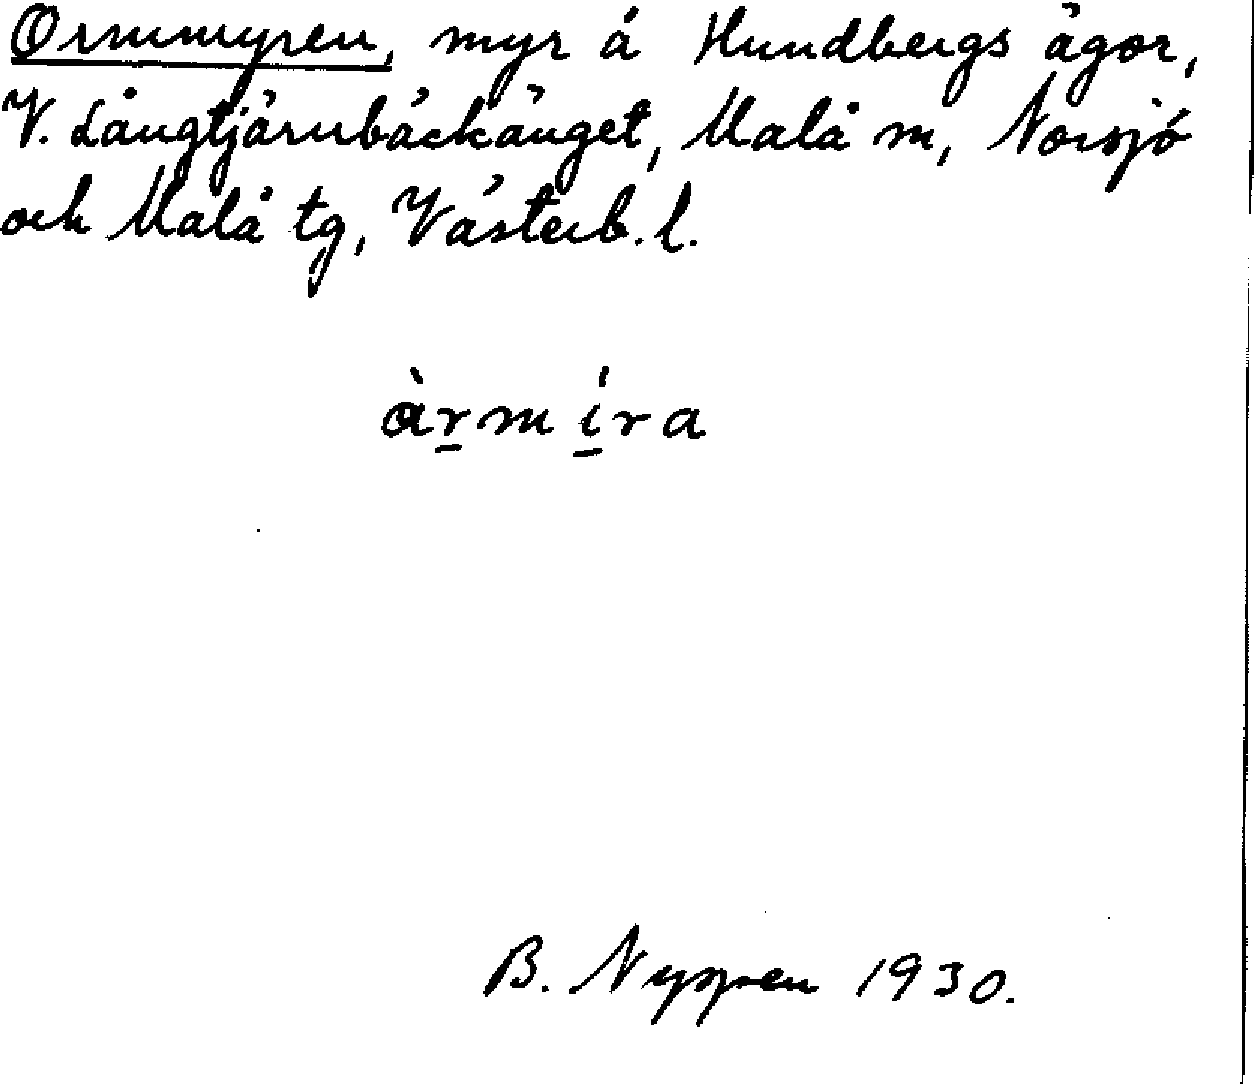 Ormmyren, myr å Hundbergs ägor,
V. Långtjärnbäckänget, Malå sn, Norsjö
och Malå tg, Västerb. l.
àrmíra
B. Nygren 1930.